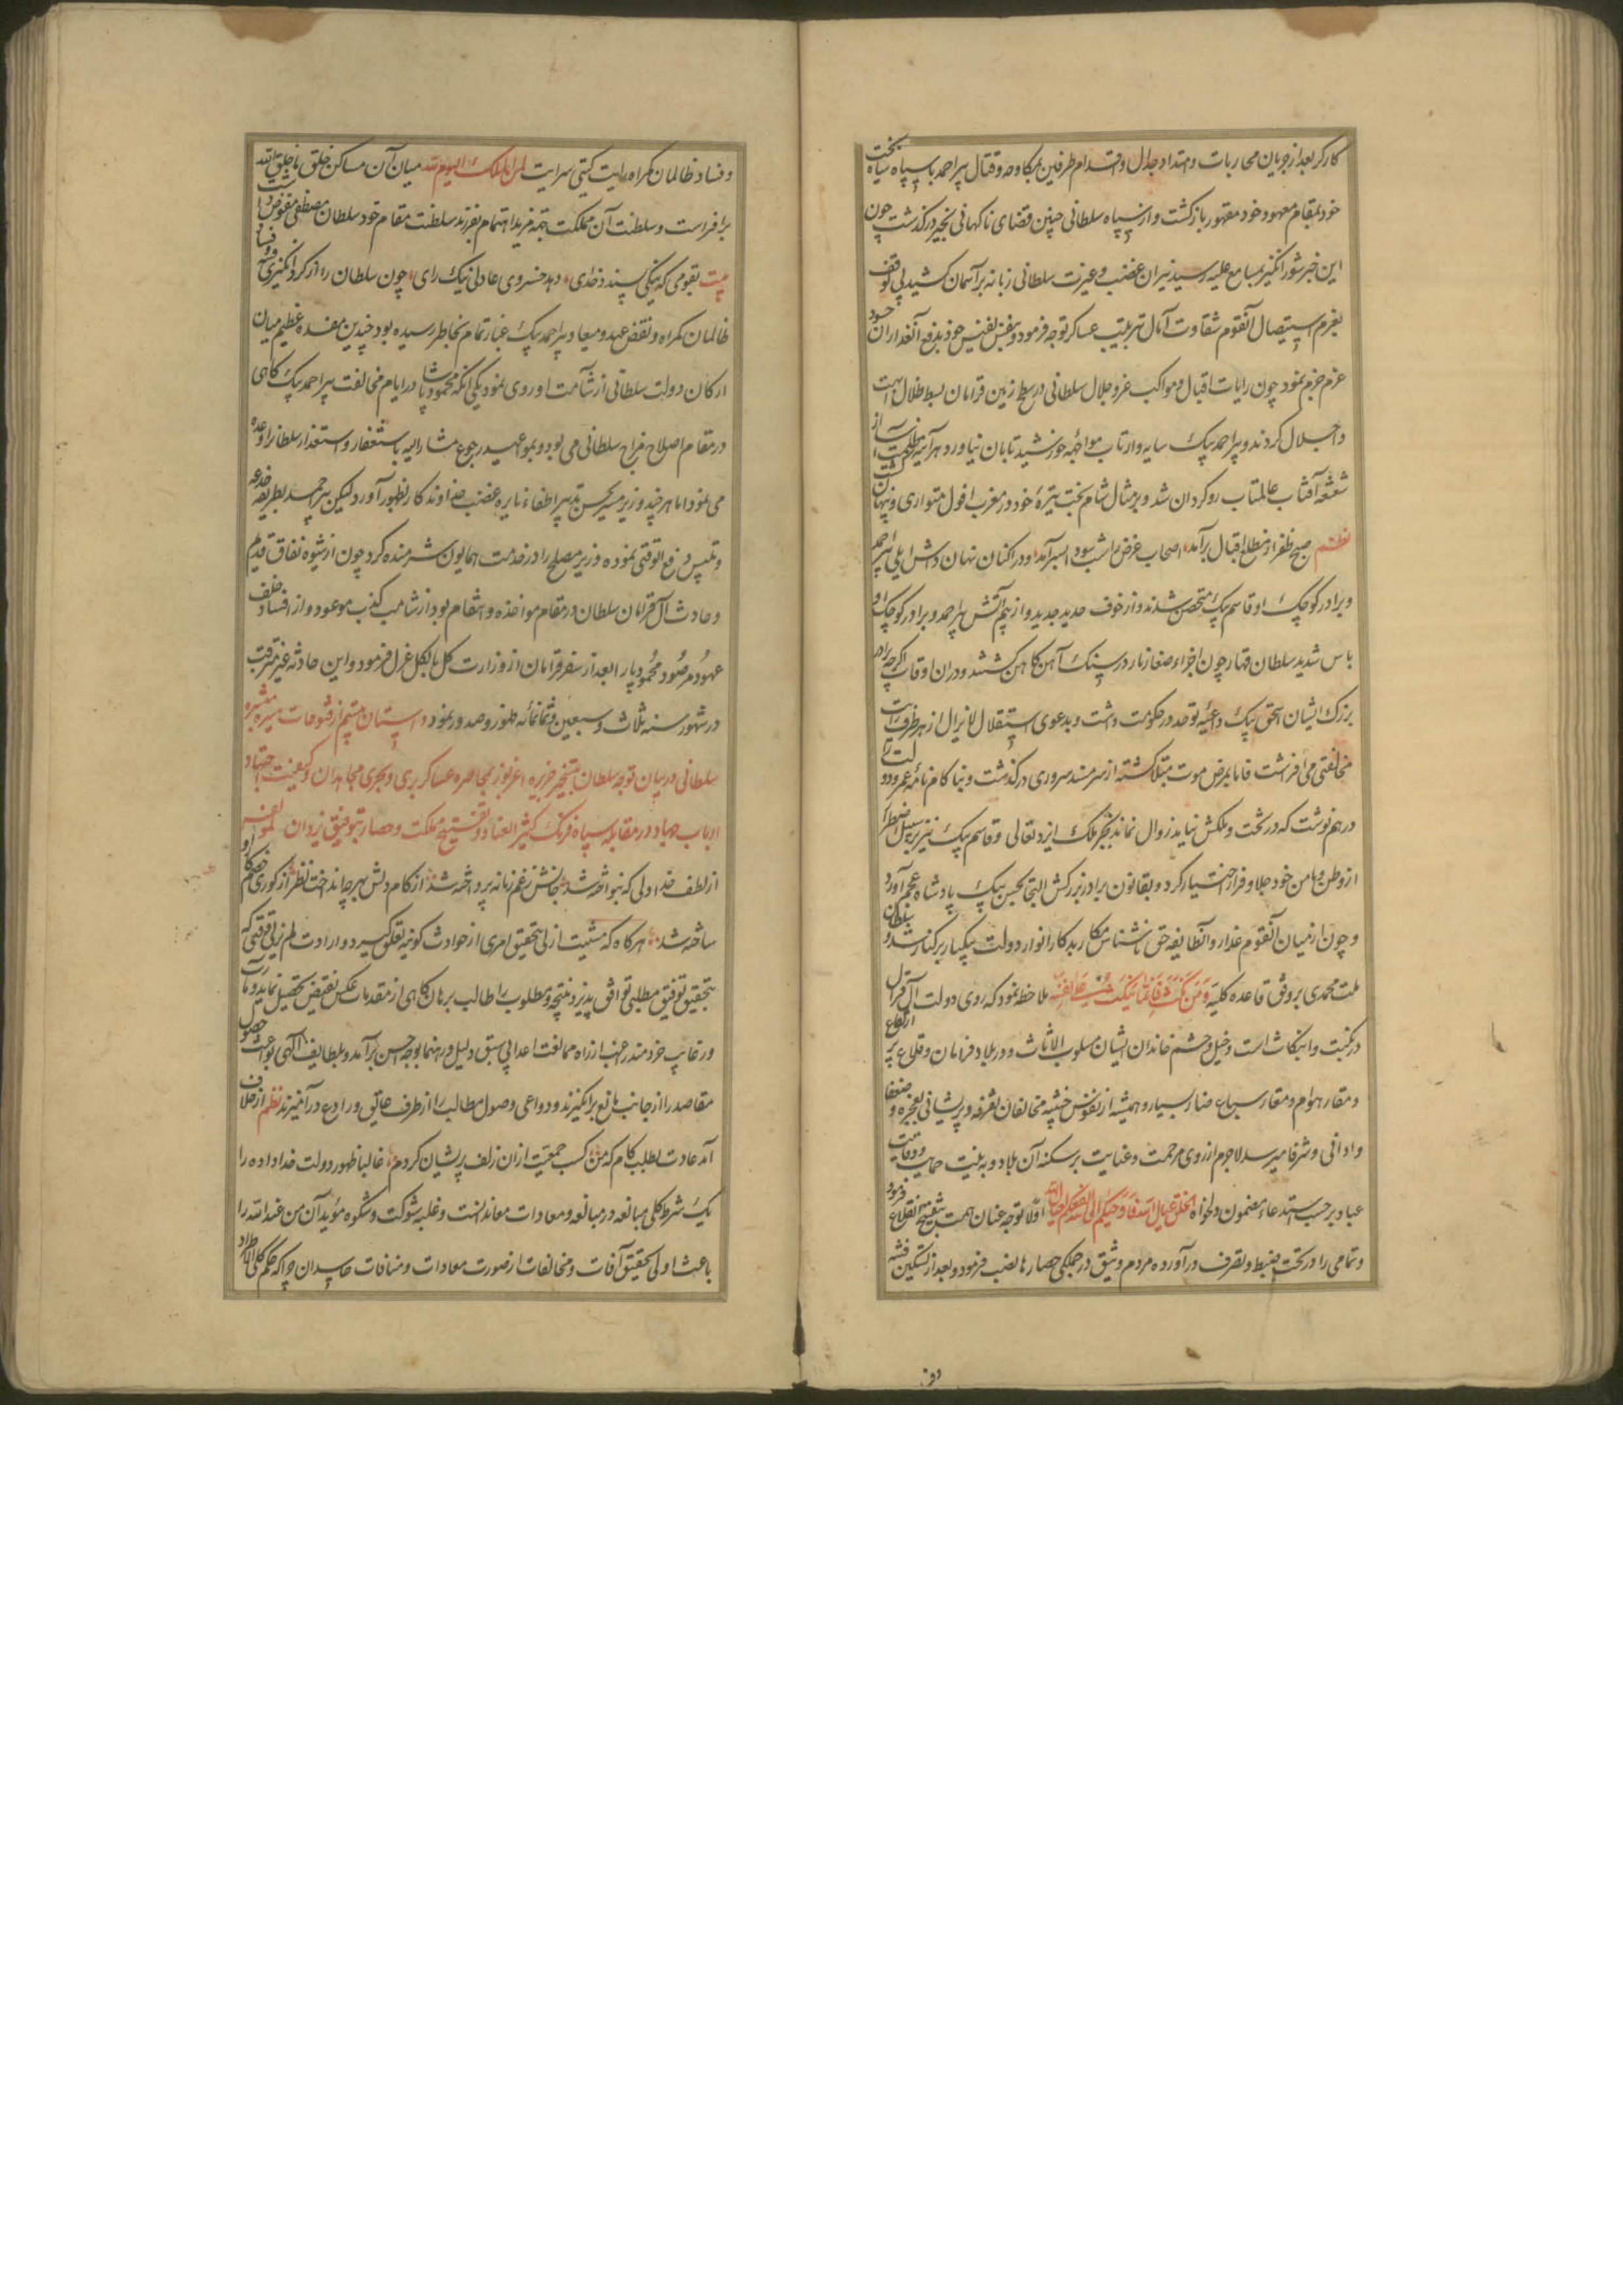 کارکر بعد از جریان محاربات و امتداد جدال و اقدام طرفین بمکاوحه و قتال پیر احمد با سپاه سیاه بخت
خود بمقام معهود خود مقهور بازگشت و از سپاه سلطانی چنین قضای ناکهانی بخیر درگذشت چون
این خبر شورانگیز بمسامع علیه رسید نیران غضب و غیرت سلطانی زبانه بر آسمان کشید بی توقف
بعزم استیصال آنقوم شقاوت آمال ترتیب عساکر توجه فرمود و بنفس نفیس خود بدفع آن غداران خود
عزم جزم نمود چون رایات اقبال و مواکب عز و جلال سلطانی در سطح زمین قرامان بسط ظلال ابهت
و اجلال کردند و پیر احمد بیک سایه وار تاب مواجهه خورشید تابان نیاورد هر آینه از
شعشعه آفتاب عالمتاب روکردان شد و بر مثال شام بخت تیرهٔ خود در مغرب افول متواری و پنهان
نظم صبح ظفر از مطلع اقبال برآمد اصحاب غرض را شب سودا بسر آمد و در اکنان نهان پیر احمد
و برادر کوچک او قاسم بیک متحصن شدند و از خوف حدید جدید و از بیم آتش پیر احمد و برادر کوچک او
باس شدید سلطان قهار چون اجزاء صغار نار در سنک آهن کامن کشتند و در ان اوقات اگرچه برادر
بزرک ایشان اسحق بیک داعیه توحد در حکومت داشت و بدعوی استقلال لایزال از هر طرف رایت
مخالفتی می افراشت فاما بمرض موت مبتلا کشته از سر مسند سروری درگذشت و بنا کام نامه عمر و دولت را
درهم نوشت که در تخت و ملکش نیاید زوال نماند بجز ملک ایزد تعالی و قاسم بیک نیز بر سبیل اضطرار
از وطن و مامن خود جلا و فرار اختیار کرد و بقانون برادر بزرکش التجا بحسن بیک پادشاه عجم آورد
و چون از میان آنقوم غدار و آن طایفه حق ناشناس مکار بدکار انوار دولت بیکبار بر کنار شد و سلطان
ملت محمدی بر وفق قاعده کلیه وَمَن نَكَثَ فَإِنَّمَا يَنكُثُ عَلَىٰ نَفْسِهِ ملاحظه نمود که روی دولت آل قرامان
در نکبت و انتکاث است و خیل و حشم خاندان ایشان مسلوب الاثاث و در بلاد قرامان و قلاع پر ارتفاع
و مقار هوام و مقار سباع ضار بسیار و همیشه از نفوس خبیثه مخالفان تفرقه و پریشانی بعجزه و ضعفا
و ادانی و شرفا میرسد لاجرم از روی مرحمت و عنایت بر سکنه آن بلاد و به نیت حمایت و وقایت
عباد بر حسب استدعاء مضمون دلخواه الخلق عیال الله اولا توجه عنان همت بتفتیح آن قلاع فرمود
و تمامی را در تحت ضبط و تصرف درآورده مردم وثیق در جمکی حصارها نصب فرمود و بعد از تسکین فتنه
وفسا
و فساد ظالمان کمراه رایت کیتی سرایت لمن الملک الیوم لله میان آن مساکن خلق با خلق الله
برافراست و سلطنت آن مملکت بتمه مزید اهتمام بفرزند سلطنت مقام خود سلطان مصطفی مفوض داشت
بیت بقومی که نیکی پسندد خدای دهد خسروی عادل نیک رای چون سلطان را از کرد انکیزی و فساد
ظالمان کمراه و نقض عهد و میعاد پیر احمد بیک غبار تمام بخاطر رسیده بود چندین مفسده عظیم میان
ارکان دولت سلطانی از شآمت او روی نمود یکی آنکه محمود پاشا در ایام مخالفت پیر احمد بیک کاهی
در مقام اصلاح مزاج سلطانی می بود و بمواعید رجوع مشارالیه باستغفار و استعذار سلطانرا وعده
می نمود اما هر چند وزیر بحسن تدبیر اطفاء نایره غضب خداوندکار بظهور آورد لیکن پیر احمد بطریقه خدعه
و تلبیس دفع الوقتی نموده وزیر مصلح را در خدمت همایون شرمنده کرد چون از شیوه نفاق قدیم
و حادث آل قرامان سلطان در مقام مواخذه و انتقام بود از شامت کذب موعود و از افساد خلف
عهود مرصود محمود پاشا را بعد از سفر قرامان از وزارت کل بالکل عزل فرمود و این حادثه غیر مترقب
در شهور سنه ثلاث و سبعین و ثمانمائه ظهور و صدور نمود داستان ستیم از فتوحات میسره مبشره
سلطانی در بیان توجه سلطان بتسخیر جزیره اغربوز بمحاصره عساکر بری و بحری مجاهدان و کیفیت اجتهاد
ارباب جهاد در مقابله سپاه فرنک کثیر العناد و تفتیح مملکت و حصار بتوفیق یزدان لمولفه
از لطف خدا دلی که بنواخته شد جانش ز غم زمانه پرداخته شد از کام دلش بهر چه انداخت نظر از کوری خصم کام او
ساخته شد هر کاه که مشیت ازلی بتحقیق امری از حوادث کونیه تعلق کیرد و ارادت لم یزلی وقتی که
بتحقیق توفیق مطلبی توافق پذیرد نتیجه و مطلوب را طالب برهان کاهی از مقدمات عکس نقیض تحصیل نماید و مآرب
و رغایب خردمند رغبا از راه ممالغت اعدا بی سبق دلیل و رهنما بوجه احسن برآمد و بلطایف الهی بواعث حصول
مقاصد را از جانب مانع برانکیزند و دواعی وصول مطالب را از طرف عایق و رادع درآمیزند نظم از خلاف
آمد عادت بطلب کام که من کسب جمعیت از آن زلف پریشان کردم غالبا ظهور دولت خداداده را
یک شرط کلی مبالغه در ممانعه و معادات معاندانست و غلبه شوکت و شکوه مؤیدان من عند الله را
باعث اولی تحقیق آفات و مخالفات از صورت معادات و منافات حاسدان چرا که حکم کلی الاطراد